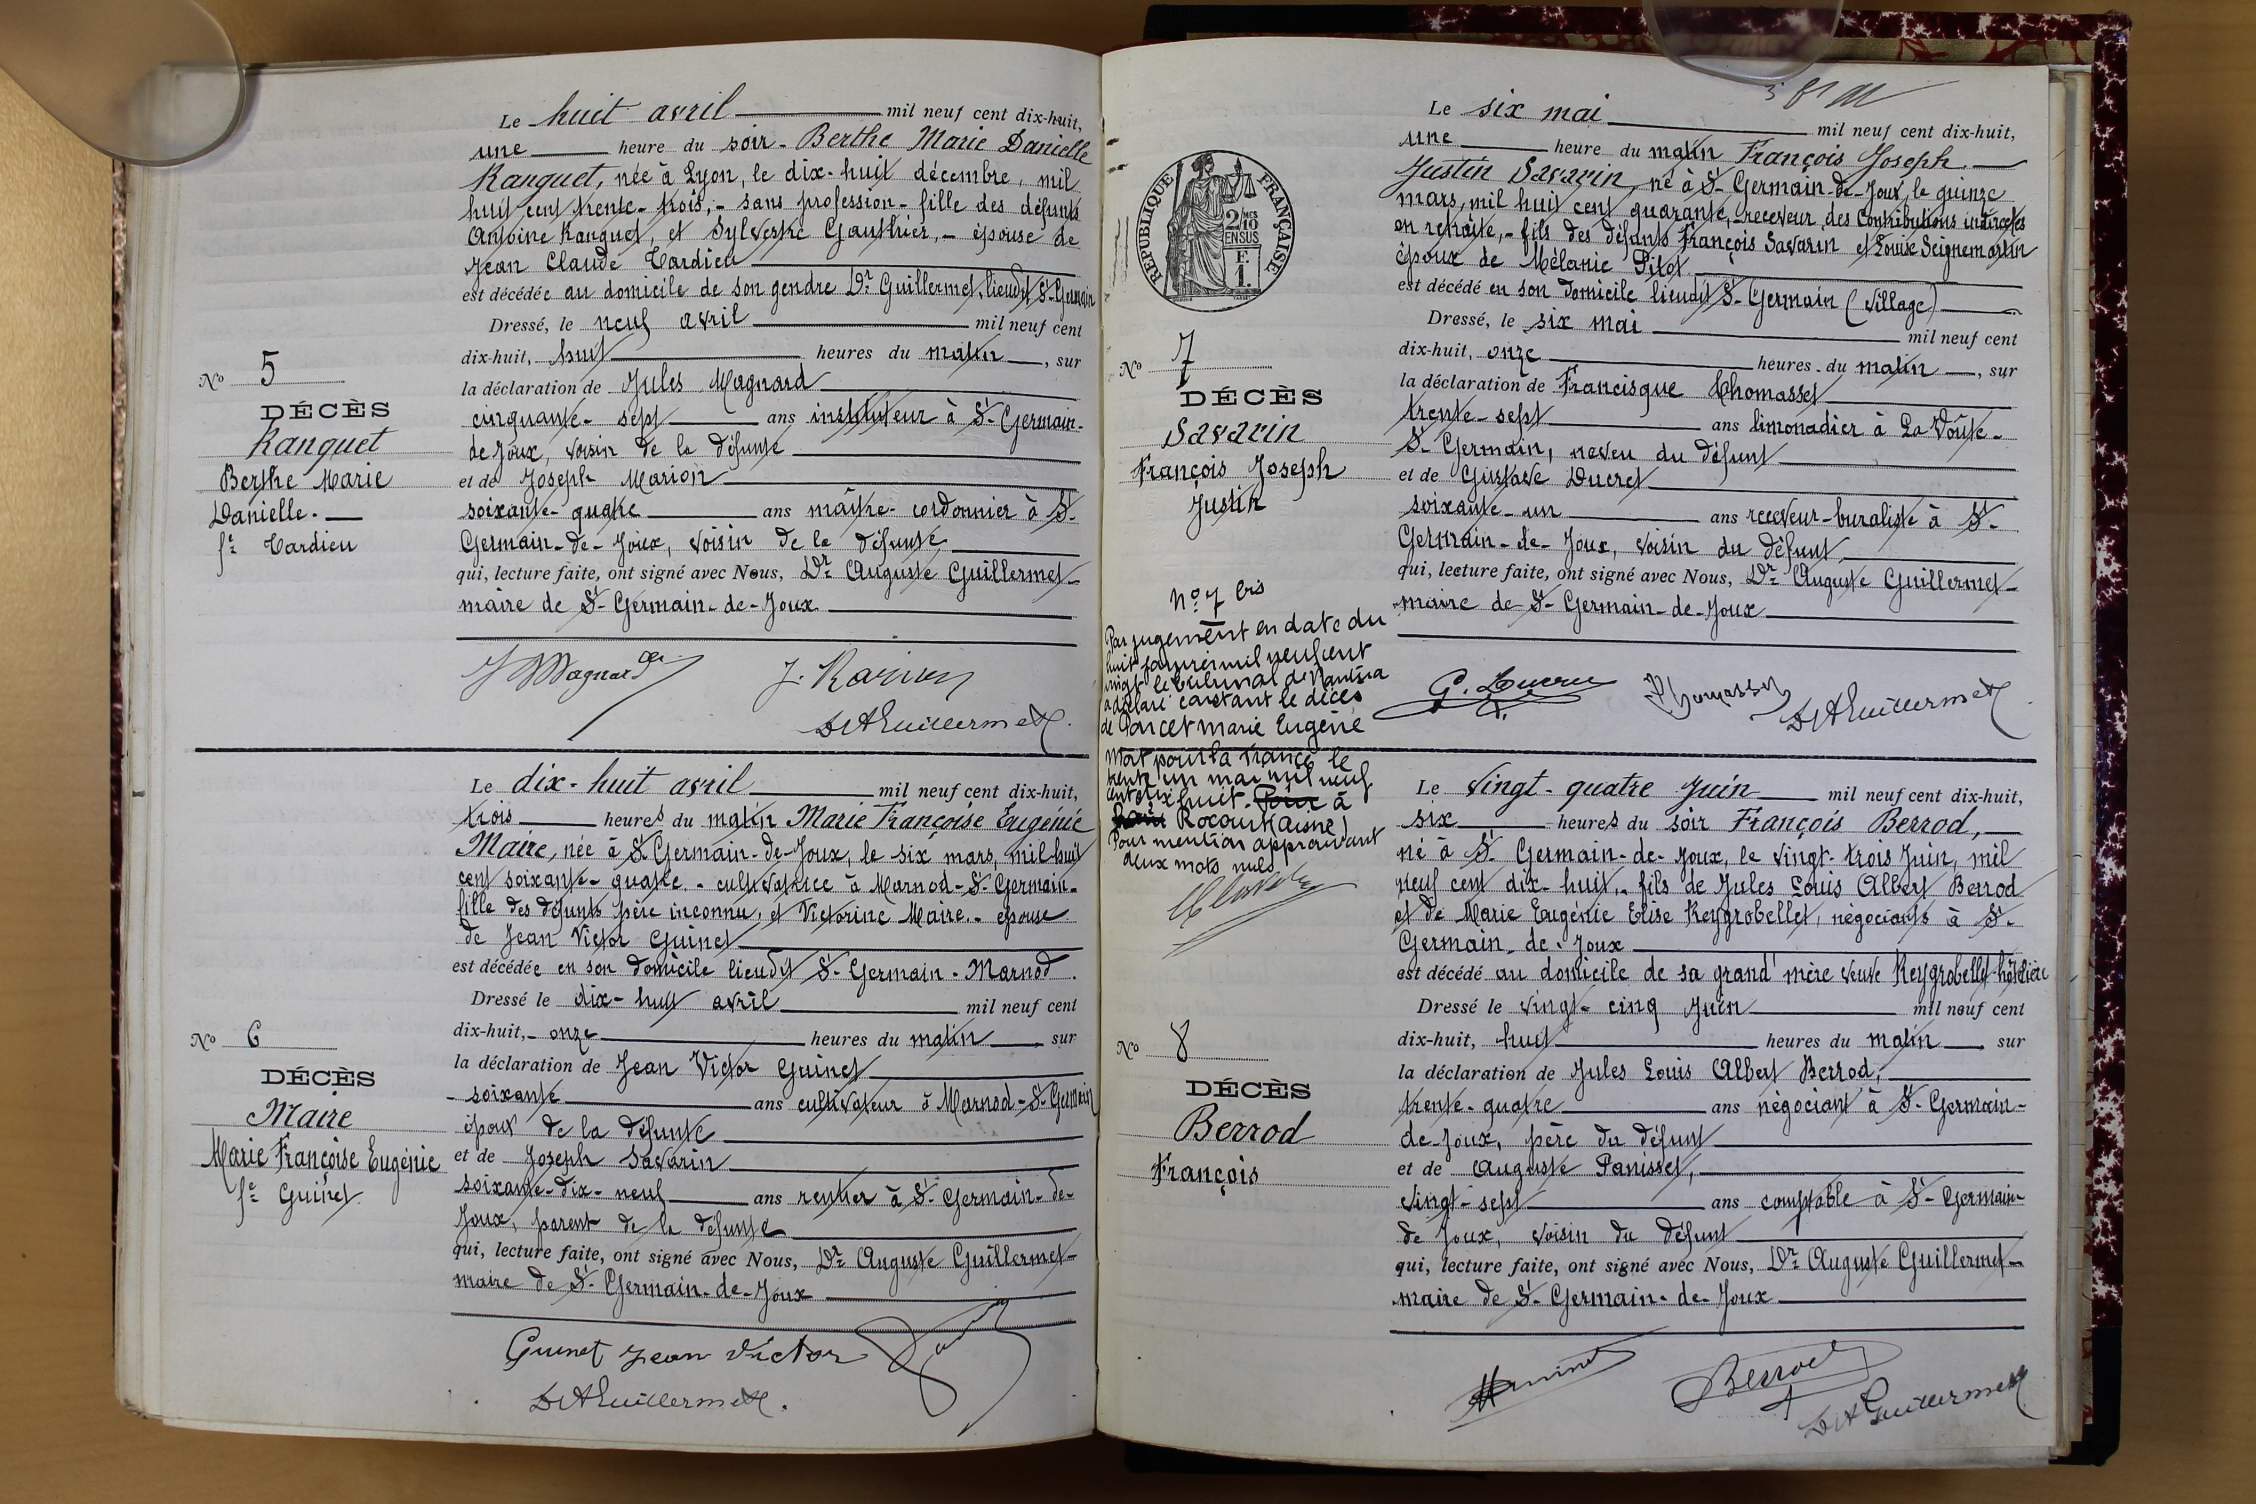 Le huit avril mil neuf cent dix-huit,
une heure du soir - Berthe Marie Danielle
Ranquet, née à Lyon, le dix-huit décembre, mil
huit cent trente-trois, - sans profession - fille des défunts
Antoine Ranquet, et Sylvestre Gauthier, - épouse de
Jean Claude Tardieu
est décédée au domicile de son gendre Dr Guillermet, lieudit St-Germain
Dressé, le neuf avril mil neuf cent
dix-huit, huit heures du matin, sur
la déclaration de Jules Magnard
cinquante-sept ans instituteur à St-Germain-
de Joux, voisin de la défunte
et de Joseph Marion
soixante-quatre ans maître-cordonnier à St-
Germain-de-Joux, voisin de la défunte
qui, lecture faite, ont signé avec Nous, Dr Auguste Guillermet-
maire de St-Germain-de-Joux
No 5
DÉCÈS
Ranquet
Berthe Marie
Danielle.
fe Tardieu
J Magnard
Dr A Guillermet
Le dix-huit avril mil neuf cent dix-huit,
trois heures du matin Marie Françoise Eugénie
Maire, née à St-Germain-de-Joux, le six mars, mil huit
cent soixante-quatre - cultivatrice à Marnod-St-Germain-
fille des défunts père inconnu, et Victorine Maire. - épouse
de Jean Victor Guinet
est décédée en son domicile lieudit St-Germain-Marnod.
Dressé le dix-huit avril mil neuf cent
dix-huit, - onze heures du matin, sur
la déclaration de Jean Victor Guinet
soixante ans cultivateur à Marnod-St-Germain
époux de la défunte
et de Joseph Savarin
soixante-dix-neuf ans rentier à St-Germain-de-
Joux, parent de la défunte
qui, lecture faite, ont signé avec Nous, Dr Auguste Guillermet-
maire de St-Germain-de-Joux
No 6
DÉCÈS
Maire
Marie Françoise Eugénie
fe Guinet
Guinet Jean Victor
Dr A Guillermet.
RÉPUBLIQUE FRANÇAISE
2/10MES
EN SUS
F.
1.
Le six mai mil neuf cent dix-huit,
une heure du matin François Joseph
Justin Savarin, né à St-Germain-de-Joux, le quinze
mars, mil huit cent quarante, - receveur des Contributions indirectes
en retraite, - fils des défunts François Savarin et Louise Seignemartin
époux de Mélanie Pitot
est décédé en son domicile lieudit St-Germain (Village)
Dressé, le six mai mil neuf cent
dix-huit, onze heures du matin, sur
la déclaration de Francisque Thomasset
trente-sept ans limonadier à La Voûte-
St-Germain, neveu du défunt
et de Gustave Ducret
soixante-un ans receveur-buraliste à St-
Germain-de-Joux, voisin du défunt
qui, lecture faite, ont signé avec Nous, Dr Auguste Guillermet-
maire de St-Germain-de-Joux
No 7
DÉCÈS
Savarin
François Joseph
Justin
No 7 bis
Par jugement en date du
huit janvier mil neuf cent
vingt le tribunal de Nantua
a déclaré constant le décès
de Poncet marie Eugène
Mort pour la France le
trente un mai mil neuf
cent dix huit. Pour à
Rocourt (aisne)
Pour mention approuvant
deux mots nuls
G. Ducret
Thomasset
Dr A Guillermet
Le vingt-quatre Juin mil neuf cent dix-huit,
six heures du soir François Berrod,
né à St-Germain-de-Joux, le vingt-trois Juin, mil
neuf cent dix-huit, - fils de Jules Louis Albert Berrod
et de Marie Eugénie Elise Reygrobellet, négociants à St-
Germain-de-Joux
est décédé au domicile de sa grand'mère veuve Reygrobellet-hôtelière
Dressé le vingt-cinq Juin mil neuf cent
dix-huit, huit heures du matin, sur
la déclaration de Jules Louis Albert Berrod,
trente-quatre ans négociant à St-Germain-
de-Joux, père du défunt
et de Auguste Panisset,
vingt-sept ans comptable à St-Germain-
de Joux, voisin du défunt
qui, lecture faite, ont signé avec Nous, Dr Auguste Guillermet-
maire de St-Germain-de-Joux
No 8
DÉCÈS
Berrod
François
Berrod
Dr A Guillermet